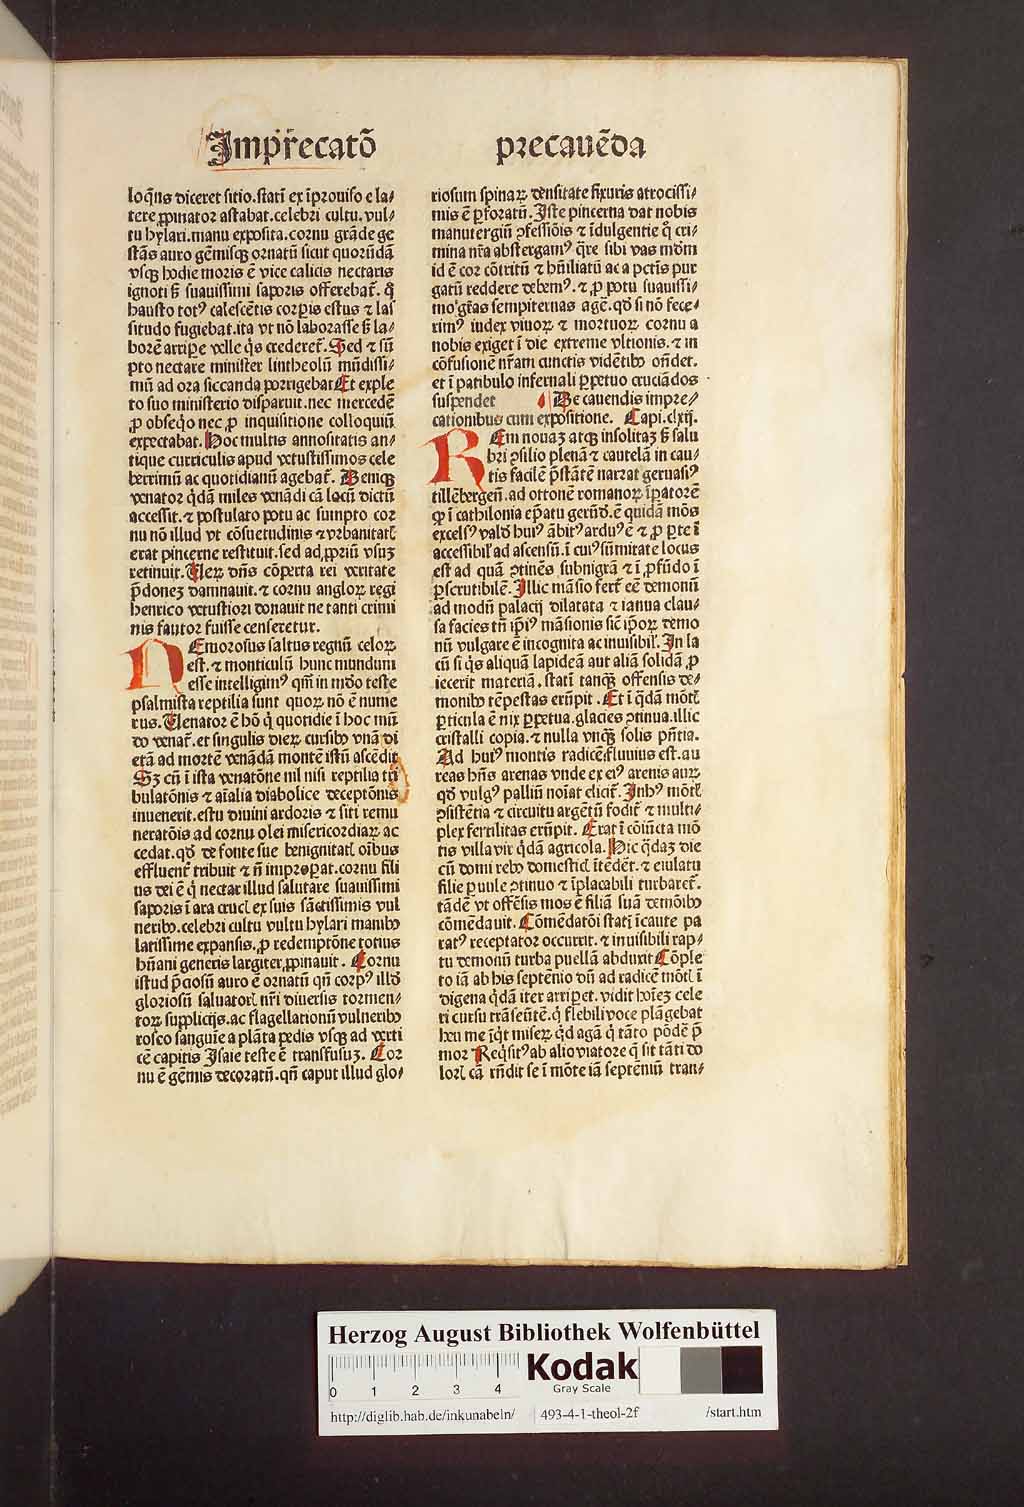 Imp̄recatō precauēda
loq̄ns diceret sitio.statī ex īprouiso e la⸗
tere ꝓpinator astabat.celebri cultu.vul⸗
tu hylari.manu exposita.cornu grāde ge
stās auro gēmisqꝫ ornatū sicut quorūdā
vsqꝫ hodie moris ē vice calicis nectaris
ignoti sꝫ suauissimi saporis offerebat᷑. q̄
hausto totꝰ calescētis corꝑis estus ⁊ las
situdo fugiebat.ita vt nō laborasse sꝫ la⸗
borē arriꝑe velle q̄s crederet᷑.Sed ⁊ sū
pto nectare minister lintheolū mūdissi⸗
mū ad ora siccanda porrigebat Et exple
to suo ministerio disparuit.nec mercedē
ꝓ obseq̄o nec ꝓ inquisitione colloquiū
expectabat. Hoc multis annositatis an⸗
tique curriculis apud vetustissimos cele
berrimū ac quotidianū agebat᷑. Deniqꝫ
venator q̄dā miles venādi cā locū dictū
accessit.⁊ postulato potu ac sumpto cor
nu nō illud vt cōsuetudinis ⁊ vrbanitatꝭ
erat pincerne restituit.sed ad ꝓpriū vsuꝫ
retinuit.Veꝝ dn̄s cōperta rei veritate
p̄doneꝫ damnauit.⁊ cornu angloꝝ regi
henrico vetustiori donauit ne tanti crimi
nis fautor fuisse censeretur.
NEmorosus saltus regnū celoꝝ
est.⁊ monticulū hunc mundum
esse intelligimꝰ qm̄ in mūdo teste
psalmista reptilia sunt quoꝝ nō ē nume
rus.Venator ē hō q̄ quotidie ī hoc mū
do venat᷑.et singulis dieꝝ cursibꝰ vnā di
etā ad mortē venādā montē istū ascēdit
Sꝫ cū ī ista venatōne nil nisi reptilia tri
bulatōnis ⁊ aīalia diabolice deceptōnis
inuenerit.estu diuini ardoris ⁊ siti remu
neratōis ad cornu olei misericordiaꝝ ac
cedat.qd̄ de fonte sue benignitatꝭ oībus
effluent᷑ tribuit ⁊ n̄ improperat.cornu fili
us dei ē q̄ nectar illud salutare suauissimi
saporis ī ara crucꝭ ex suis sāctissimis vul
neribꝰ.celebri cultu vultu hylari manibꝰ
latissime expansis.ꝓ redemptōne totius
hūani generis largiter ꝓpinauit. Cornu
istud p̄ciosū auro ē ornatū qn̄ corpꝰ illd̄
gloriosū saluatorꝭ nr̄i diuersis tormen⸗
toꝝ supplicijs.ac flagellationū vulneribꝰ
roseo sanguīe a plāta pedis vsqꝫ ad verti
cē capitis Isaie teste ē transfusuꝫ. Cor
nu ē gēmis decoratū.qn̄ caput illud glo⸗
riosum spinaꝝ densitate fixuris atrocissi⸗
mis ē ꝑforatū.Iste pincerna dat nobis
manutergiū ꝯfessiōis ⁊ īdulgentie q̄ cri⸗
mina nr̄a abstergamꝰ q̄re sibi vas mūdm
id ē cor cōtritū ⁊ hūiliatū ac a pctīs pur
gatū reddere debemꝰ.⁊ ꝓ potu suauissi⸗
mo gr̄as sempiternas age.qd̄ si nō fece⸗
rimꝰ iudex viuoꝝ ⁊ mortuoꝝ cornu a
nobis exiget ī die extreme vltionis.⁊ in
cōfusionē nr̄am cunctis vidētibꝰ on̄det.
et ī patibulo infernali ꝑpetuo cruciādos
suspendet De cauendis impre⸗
cationibus cum expositione. Capi.clxij.
REm nouaꝫ atqꝫ insolitaꝫ sꝫ salu
bri ꝯsilio plenā ⁊ cautelā in cau⸗
tis facilē p̄stātē narrat geruasiꝰ
tillēbergeñ.ad ottonē romanoꝝ īꝑatorē
ꝙ ī cathilonia ep̄atu gerūd.ē quidā mōs
excelsꝰ vald̄ huiꝰ ābitꝰ arduꝰ ē ⁊ ꝓ ꝑte ī
accessibil᷑ ad ascensū.ī cuiꝰ sūmitate locus
est ad quā ꝯtinēs subnigrā ⁊ ī ꝓfūdo ī
ꝑscrutibilē.Illic māsio fert᷑ eē demonū
ad modū palacij dilatata ⁊ ianua clau⸗
sa facies tn̄ ip̄iꝰ māsionis sic̄ ip̄oꝝ demo
nū vulgare ē incognita ac inuisibil᷑.In la
cū si q̄s aliquā lapideā aut aliā solidā ꝓ
iecerit materiā.statī tanqꝫ offensis de⸗
monibꝰ tēpestas erūpit.Et ī q̄dā mōtꝭ
ꝑticula ē nix ꝑpetua.glacies ꝯtinua.illic
cristalli copia.⁊ nulla vnqꝫ solis pn̄tia.
Ad huiꝰ montis radicē fluuius est.au
reas hn̄s arenas vnde ex eiꝰ arenis auꝝ
qd̄ vulgꝰ palliū noīat elicit᷑.Inhꝰ mōtꝭ
ꝯsistētia ⁊ circuitu argētū fodit᷑ ⁊ multi⸗
plex fertilitas erūpit. Erat ī cōiūcta mō
tis villa vir q̄dā agricola.Hic q̄daꝫ die
cū domi rebꝰ domesticꝭ ītēdēt.⁊ eiulatu
filie ꝑuule ꝯtinuo ⁊ īplacabili turbaret᷑.
tādē vt offēsis mos ē filiā suā demōibꝰ
cōmēdauit.Cōmēdatōi statī īcaute pa
ratꝰ receptator occurrit.⁊ inuisibili rap⸗
tu demonū turba puellā abduxit Cōple
to iā ab his septēnio dū ad radicē mōtꝭ ī
digena q̄dā iter arriꝑet.vidit hoīeꝫ cele
ri cursu trāseūtē.q̄ flebili voce plāgebat
heu me īq̄t miseꝝ.q̄d agā q̄ tāto pōdē p̄
mor Req̄sitꝰ ab alio viatore q̄ sit tāti do
lorꝭ cā rn̄dit se ī mōte iā septēniū tran⸗
Herzog August Bibliothek Wolfenbüttel
0 1 2 3 4
Kodak
Gray Scale
http://diglib.hab.de/inkunabeln/ 493-4-1-theol-2f /start.htm